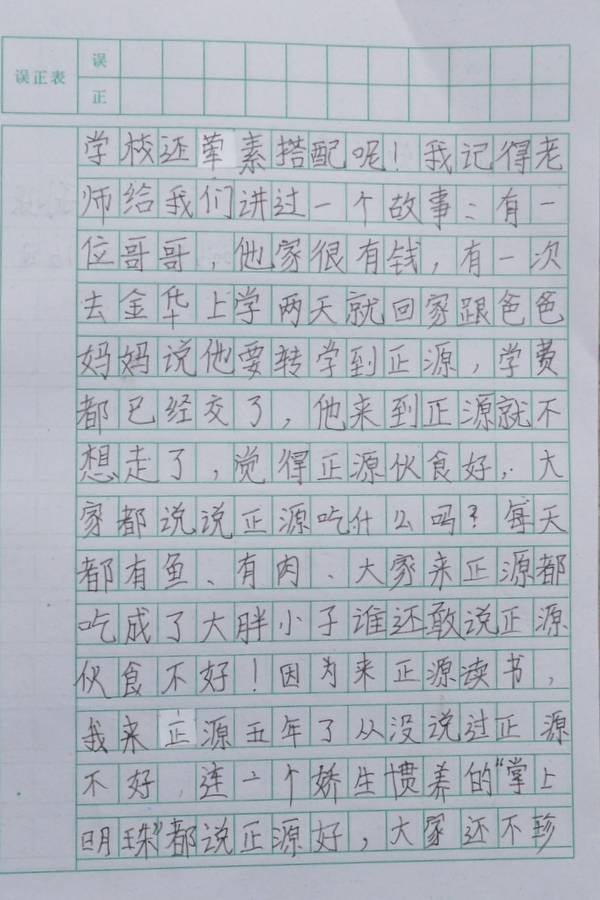 误正表
误
正
学校还荤素搭配呢！我记得老
师给我们讲过一个故事：有一
位哥哥，他家很有钱，有一次
去金华上学两天就回家跟爸爸
妈妈说他要转学到正源，学费
都已经交了，他来到正源就不
想走了，觉得正源伙食好，大
家都说说正源吃什么吗？每天
都有鱼、有肉、大家来正源都
吃成了大胖小子谁还敢说正源
伙食不好！因为来正源读书，
我来正源五年了从没说过正源
不好，连一个娇生惯养的“掌上
明珠”都说正源好，大家还不珍